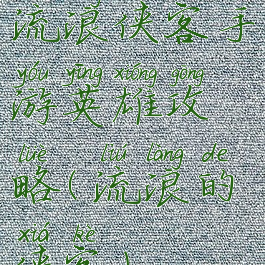 流浪侠客手
yóu yīng xióng gōng
游英雄攻
lüè liú làng de
略(流浪的
xiá kè
侠客)